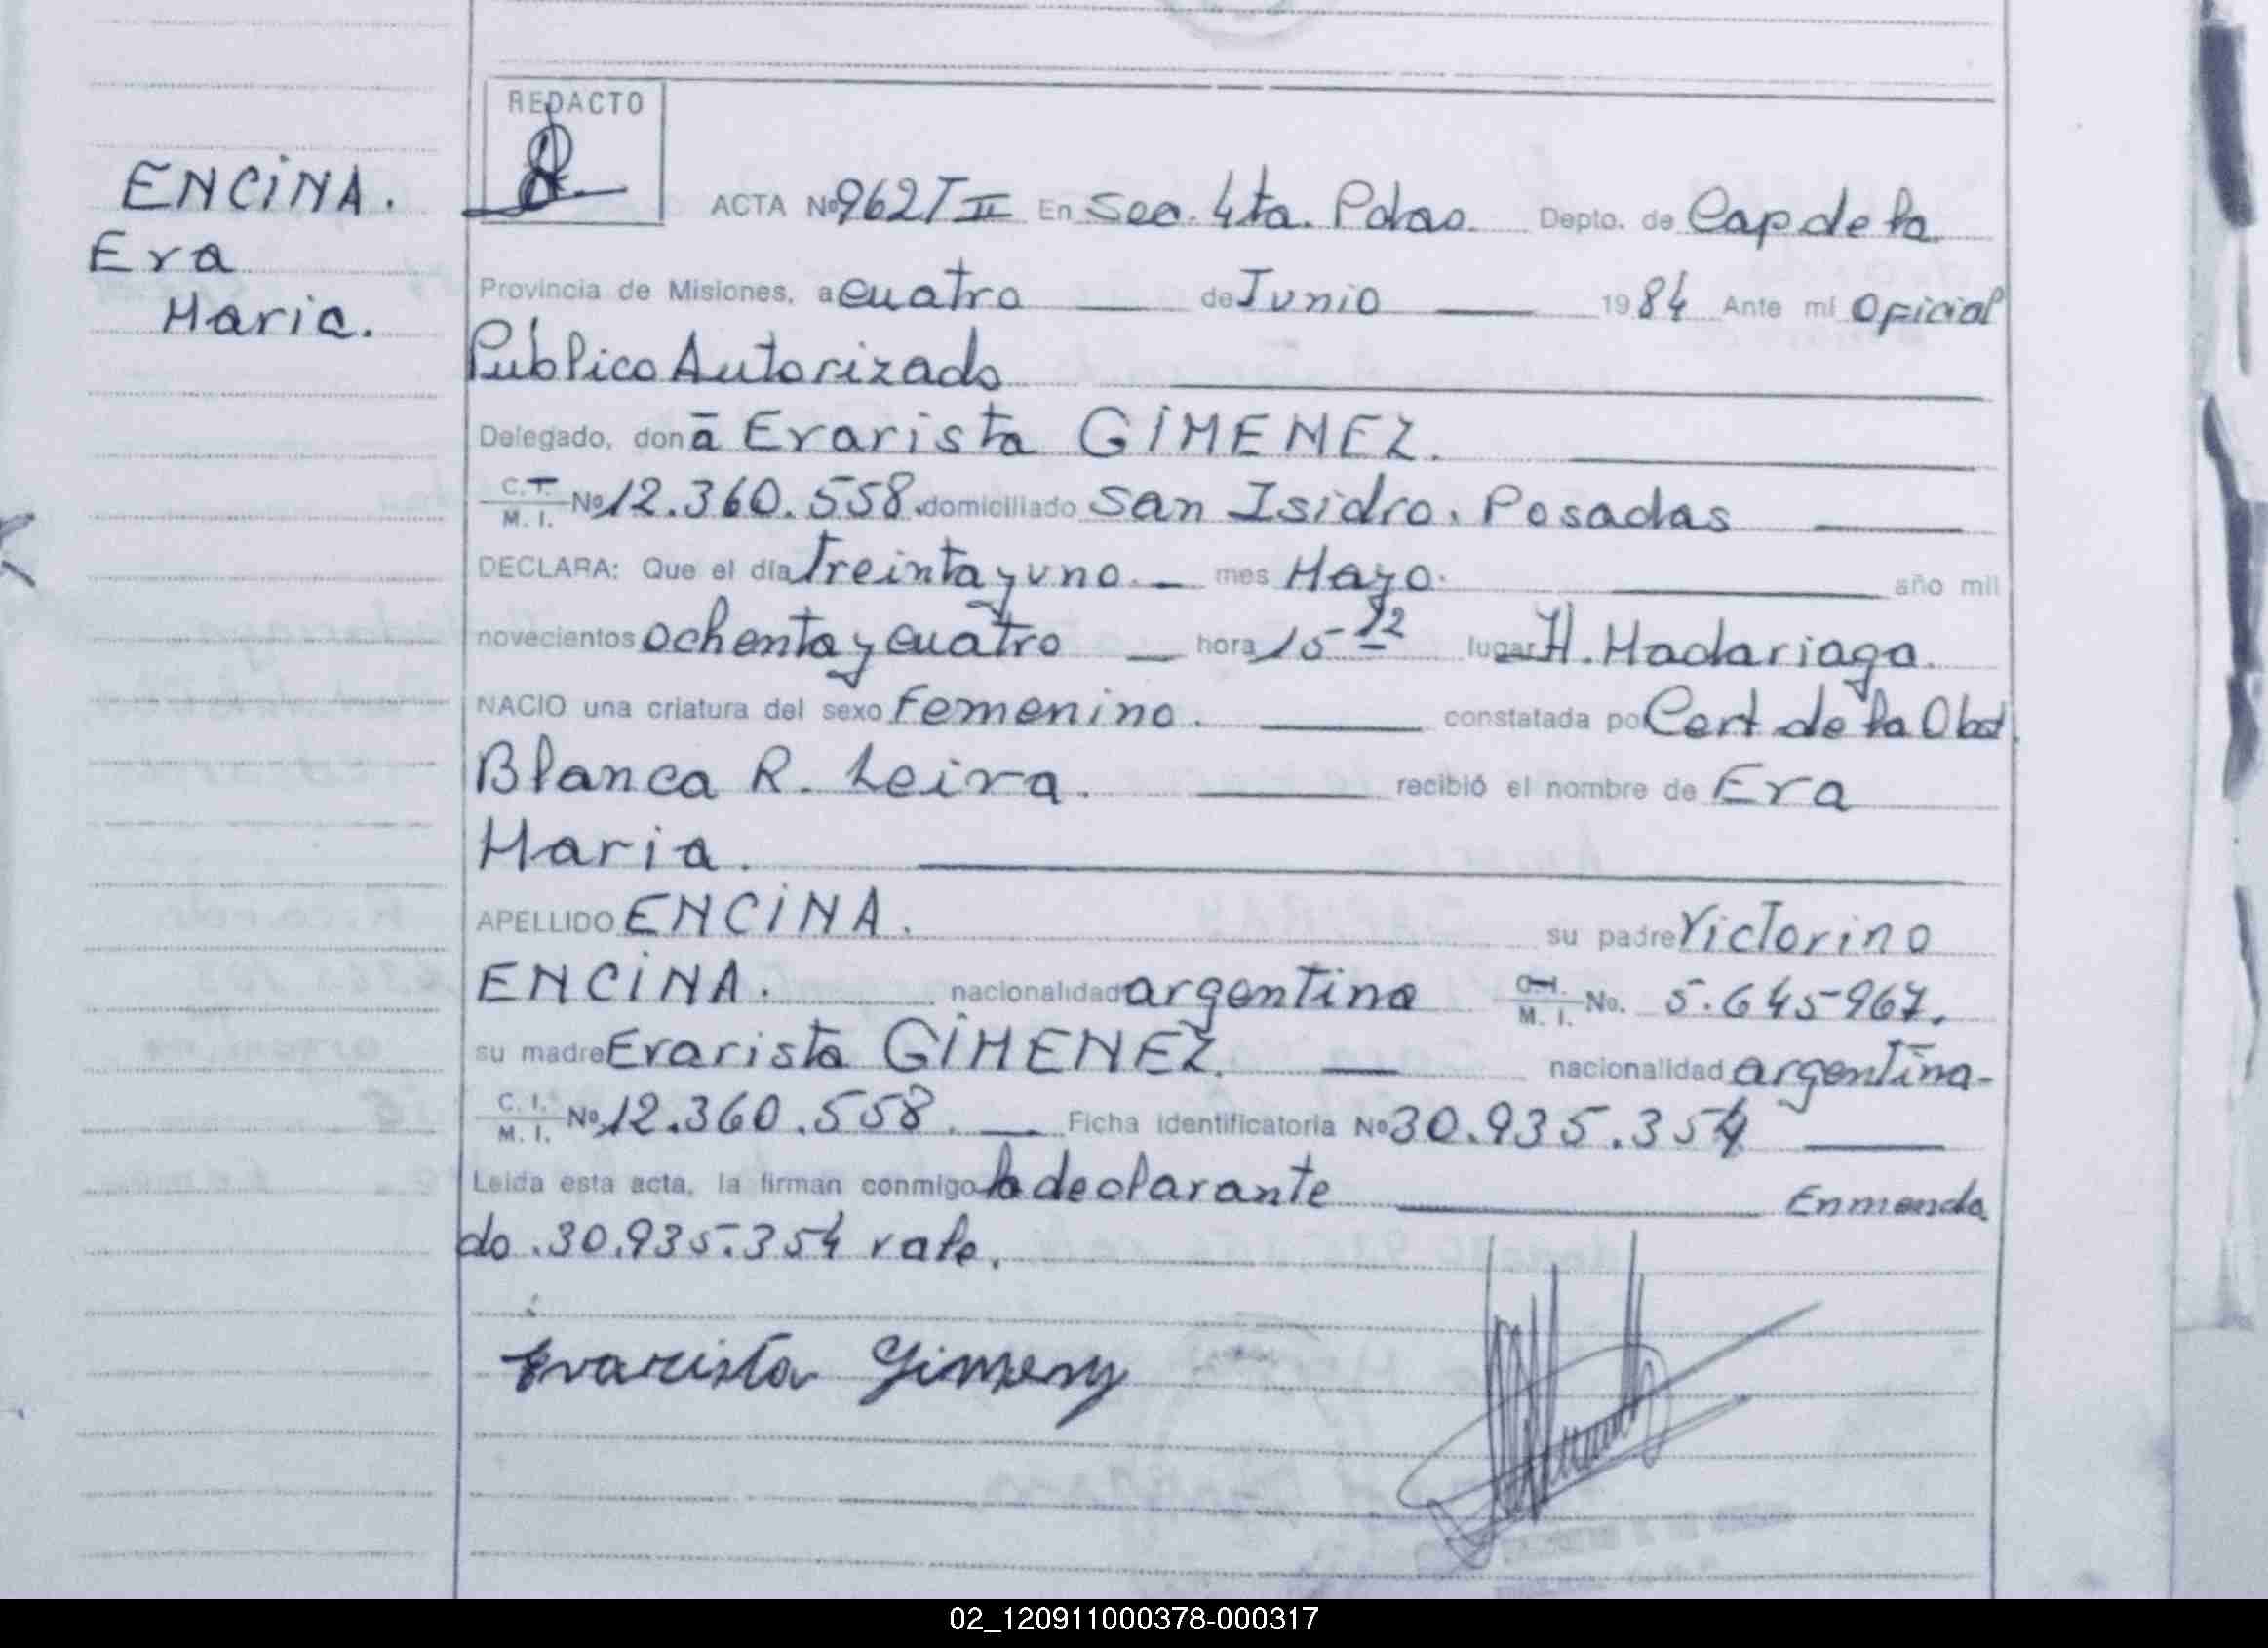 REDACTO
ENCINA.
Eva
Maria.
ACTA Nº 962 T II En Sec. 4ta. Pdas. Depto. de Cap de la
Provincia de Misiones, a cuatro de Junio 1984 Ante mí Oficial
Público Autorizado
Delegado, don ā Evarista GIMENEZ.
C. I. M. I. Nº 12.360.558. domiciliado San Isidro. Posadas
DECLARA: Que el día treinta y uno. mes Mayo. año mil
novecientos ochenta y cuatro hora 15-22 lugar H. Madariaga.
NACIO una criatura del sexo femenino. constatada po Cert de la Obst.
Blanca R. Leiva. recibió el nombre de Eva
Maria.
APELLIDO ENCINA. su padre Victorino
ENCINA. nacionalidad argentina C. I. M. I. No. 5.645-967.
su madre Evarista GIMENEZ. nacionalidad argentina-
C. I. M. I. Nº 12.360.558. Ficha identificatoria Nº 30.935.354
Leída esta acta, la firman conmigo la declarante Enmenda
do. 30.935.354 vale.
Evarista Gimenez
02_120911000378-000317